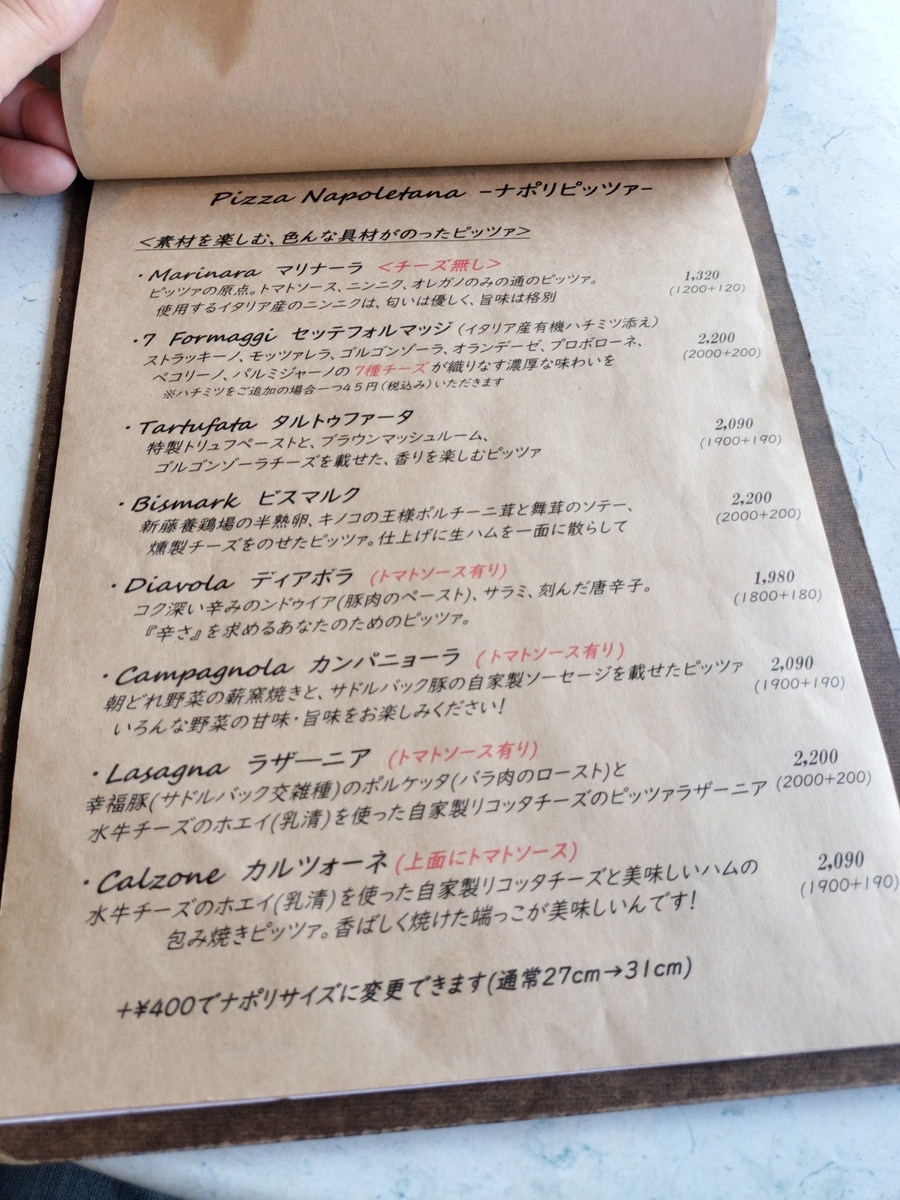 Pizza Napoletana -ナポリピッツァ-
<素材を楽しむ、色んな具材がのったピッツァ>
・Marinara マリナーラ <チーズ無し> 1,320
ピッツァの原点。トマトソース、ニンニク、オレガノのみの通のピッツァ。 (1200+120)
使用するイタリア産のニンニクは、匂いは優しく、旨味は格別
・7 Formaggi セッテフォルマッジ (イタリア産有機ハチミツ添え) 2,200
ストラッキーノ、モッツァレラ、ゴルゴンゾーラ、オランデーゼ、プロボローネ、 (2000+200)
ペコリーノ、パルミジャーノの 7種チーズ が織りなす濃厚な味わいを
※ハチミツをご追加の場合一つ45円(税込み)いただきます
・Tartufata タルトゥファータ 2,090
特製トリュフペーストと、ブラウンマッシュルーム、 (1900+190)
ゴルゴンゾーラチーズを載せた、香りを楽しむピッツァ
・Bismark ビスマルク 2,200
新藤養鶏場の半熟卵、キノコの王様ポルチーニ茸と舞茸のソテー、 (2000+200)
燻製チーズをのせたピッツァ。仕上げに生ハムを一面に散らして
・Diavola ディアボラ (トマトソース有り) 1,980
コク深い辛みのンドゥイア(豚肉のペースト)、サラミ、刻んだ唐辛子。 (1800+180)
『辛さ』を求めるあなたのためのピッツァ。
・Campagnola カンパニョーラ (トマトソース有り) 2,090
朝どれ野菜の薪窯焼きと、サドルバック豚の自家製ソーセージを載せたピッツァ (1900+190)
いろんな野菜の甘味・旨味をお楽しみください!
・Lasagna ラザーニア (トマトソース有り) 2,200
幸福豚(サドルバック交雑種)のポルケッタ(バラ肉のロースト)と (2000+200)
水牛チーズのホエイ(乳清)を使った自家製リコッタチーズのピッツァラザーニア
・Calzone カルツォーネ (上面にトマトソース) 2,090
水牛チーズのホエイ(乳清)を使った自家製リコッタチーズと美味しいハムの (1900+190)
包み焼きピッツァ。香ばしく焼けた端っこが美味しいんです!
+¥400でナポリサイズに変更できます(通常27cm→31cm)